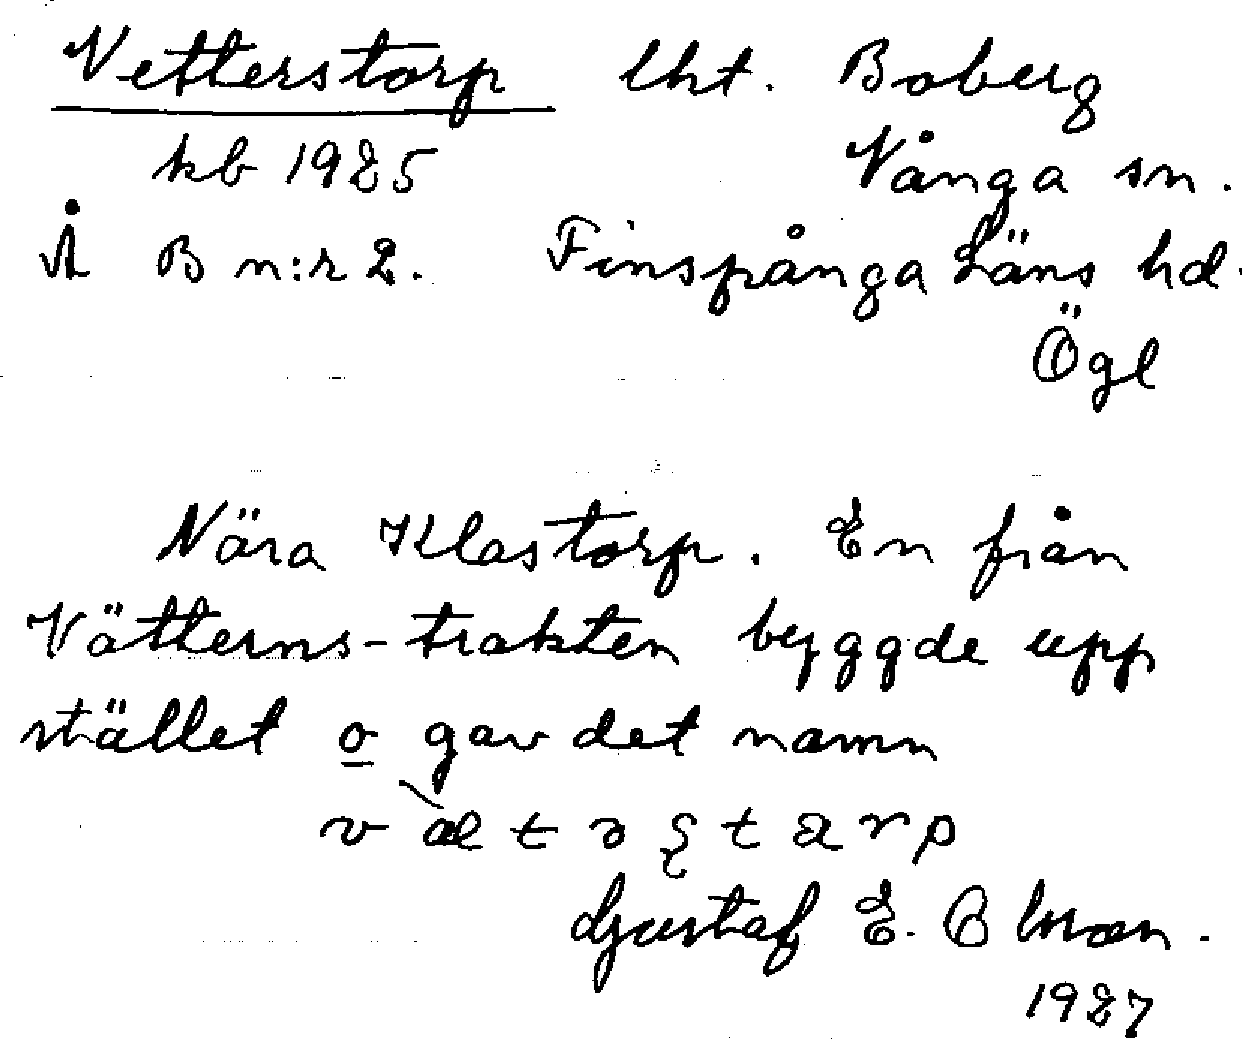 Vetterstorp lht. Boberg
kb 1925 Vånga sn.
Å B n:r 2. Finspånga Läns hd.
Ögl
Nära Klastorp. En från
Vätterns-trakten byggde upp
stället o gav det namn
Gustaf E. Bman.
1927